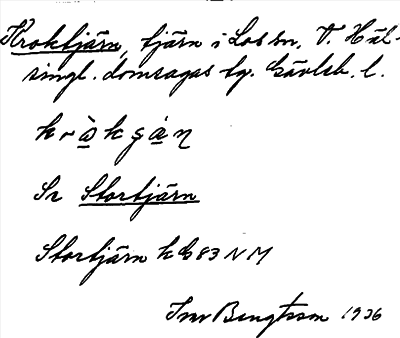 Kroktjärn, tjärn i Los sn. V. Häl-
singl. domsagas tg. Gävleb. l.
Se Stortjärn
Stortjärn hb 83 NM
Ivar Bengtsson 1936